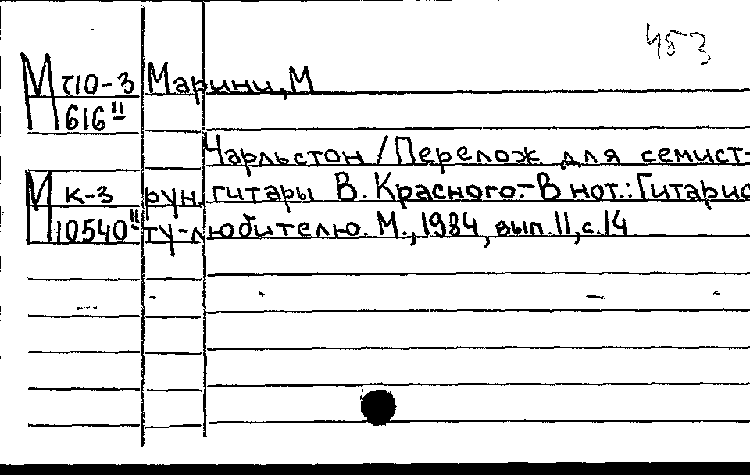 453
М ч10-3 Марини, М
616 II
Чарльстон / Перелож для семист-
М к-3 рун. гитары В. Красного.- В нот.: Гитарис
10540 II ту-любителю. М., 1984, вып. 11, с. 14